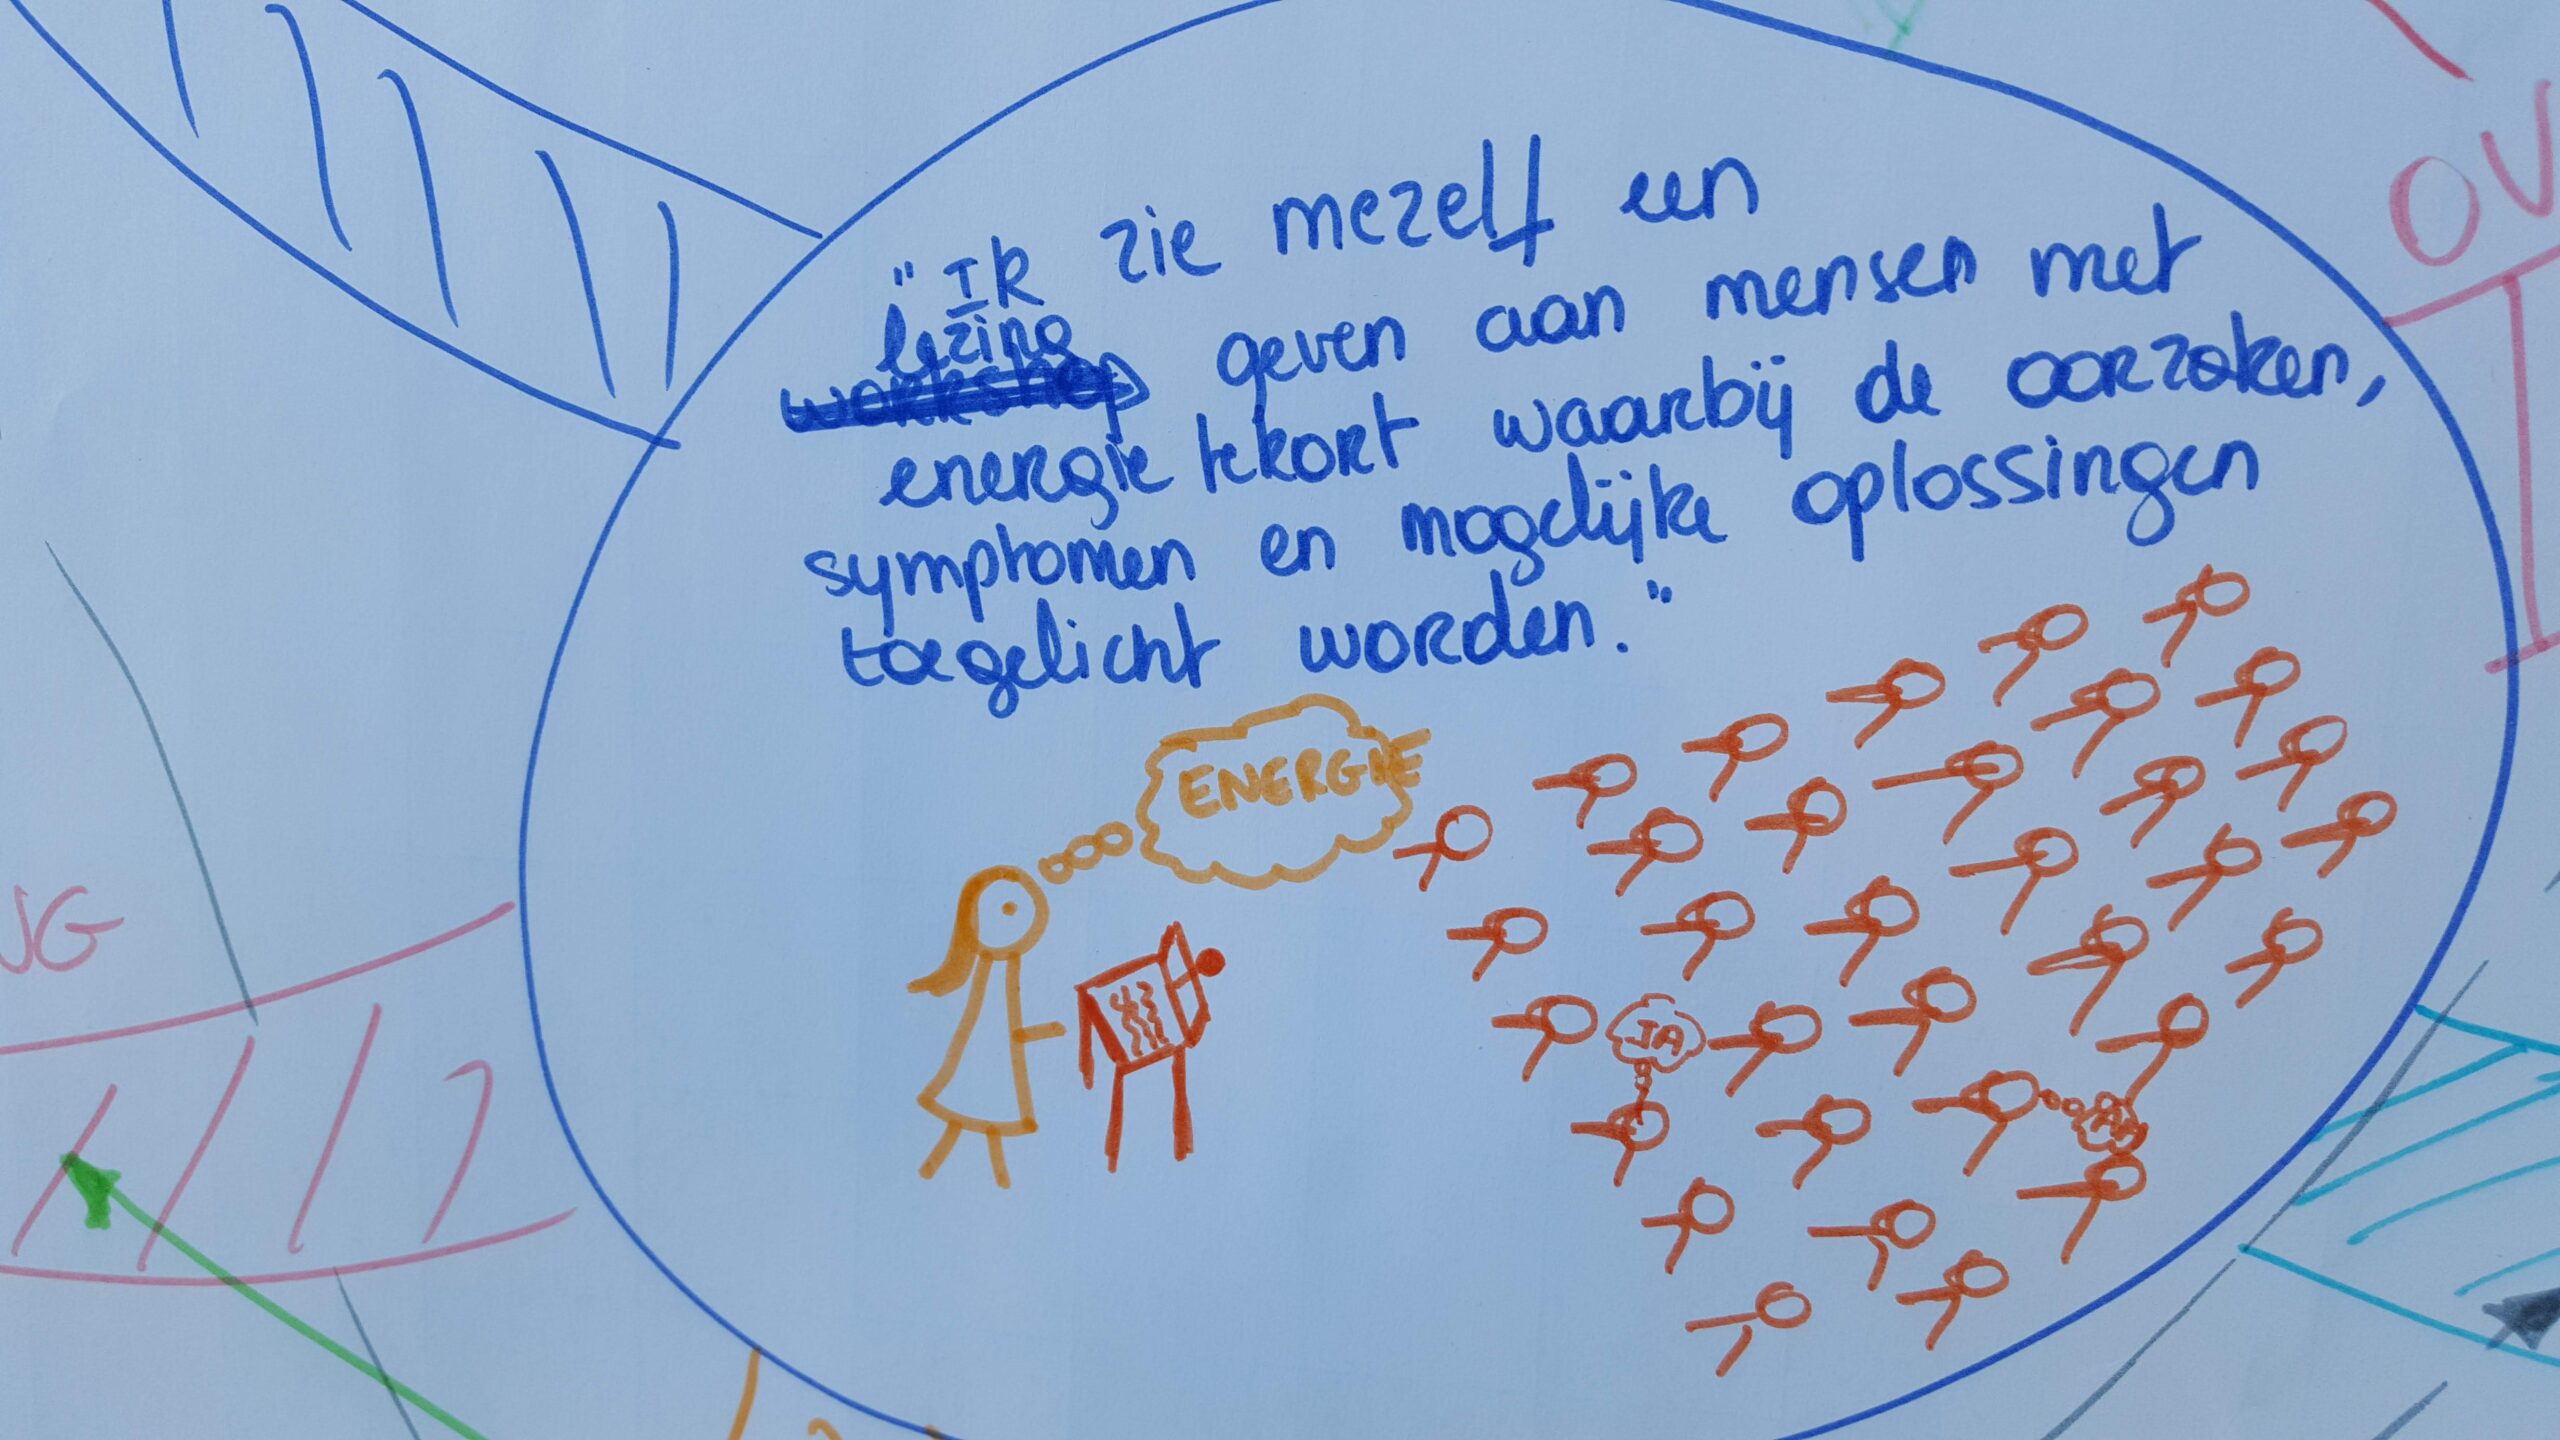 "Ik zie mezelf een
lezing
workshop geven aan mensen met
energie tekort waarbij de oorzaken,
symptomen en mogelijke oplossingen
toegelicht worden."
ENERGIE
JA
OV
NG